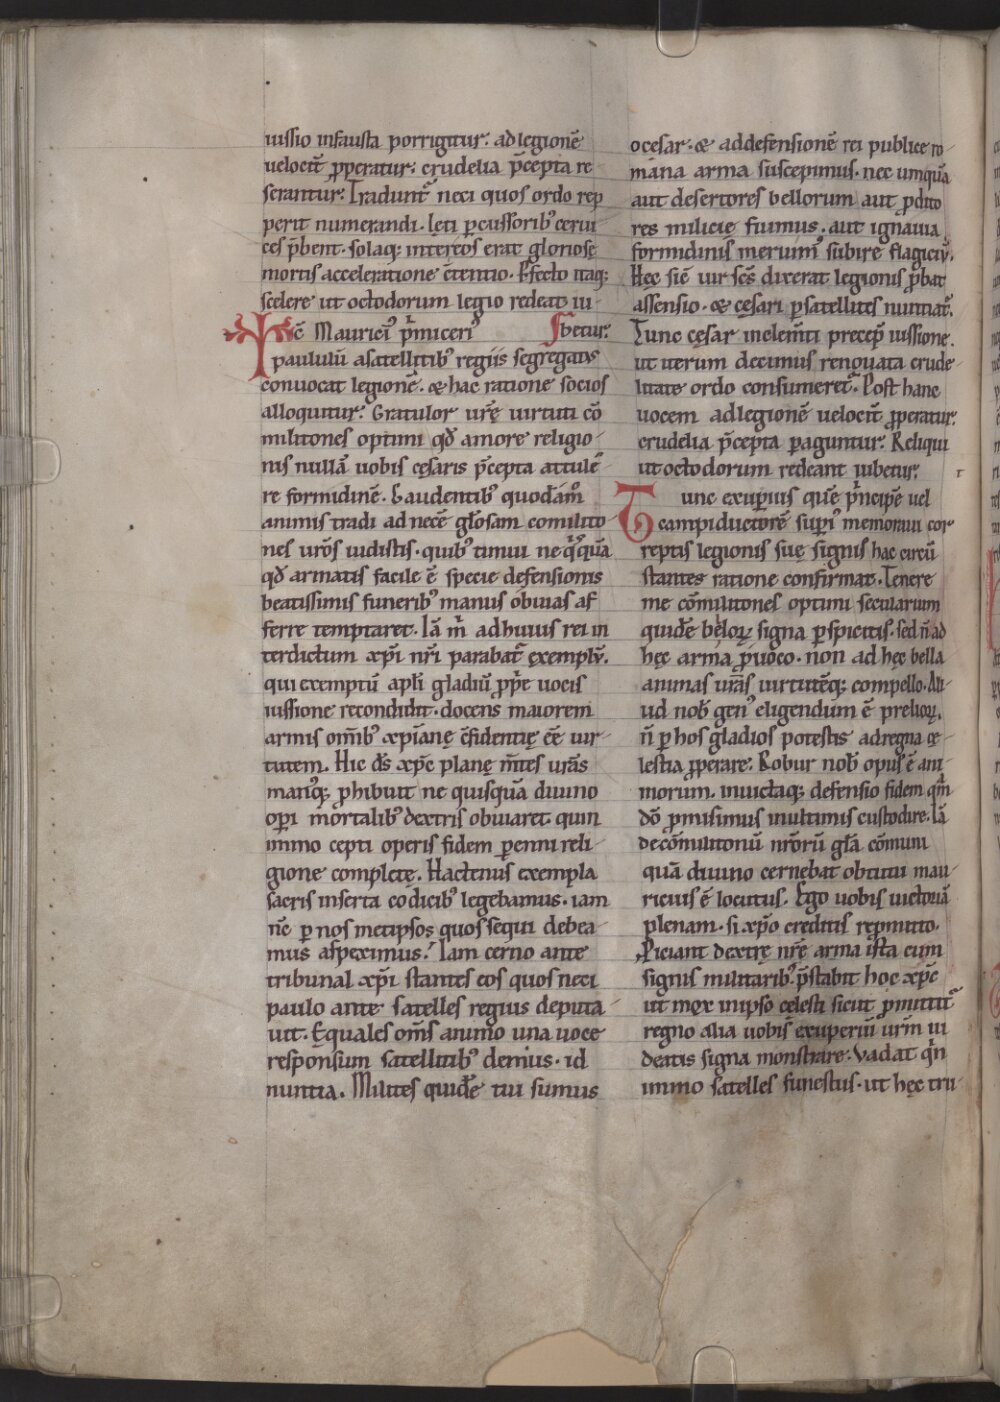 iussio infausta porrigitur. ad legionē
uelocit̄ p̱peratur. crudelia p̄cepta re
serantur. Tradunt᷑ neci quos ordo rep
perit numerandi. leti ꝑcussorib᷒ cerui
ces p̄bent. solaq; int̄ eos erat gloriose
mortis acceleratione c̄tentio. Pfecto itaq;
scelere ut octodorum legio redeat iu
Mauriti᷒ p̄miceri᷒ betur.
paululū a satellitib᷒ regiis segregatis
conuocat legionē. & hac ratione socios
alloquitur. Gratulor ur̄ę uirtuti cō
militones optimi qđ amore religio
nis nullā uobis cęsaris p̄cepta attulē
re formidinē. Gaudentib᷒ quodāmo
animis tradi ad necē gl̄osam comilito
nes ur̄os uidistis. quib᷒ timui ne q̇sq̇uā
qđ armatis facile ē specie defensionis
beatissimis funerib᷒ manus obuias af
ferre temptaret. Iā m̄ ad huius rei in
terdictum xp̄i nr̄i parabat᷑ exemplū.
qui exemptū apl̄i gladiū pp̄e uocis
iussione recondidit. docens maiorem
armis om̄ib᷒ xp̄ianę c̄fidentię eē uir
tutem. Hic d̄s xp̄c planę m̄tes ur̄as
manusq; ꝓhibuit ne quisquā diuino
oꝑi mortalib᷒ dextris obuiaret. quin
immo cepti operis fidem ꝑenni reli
gione completę. Hactenus exempla
sacris inserta codicib᷒ legebamus. iam
nc̄ ꝑ nos metipsos quos sequi debea
mus aspeximus. Iam cerno ante
tribunal xp̄i stantes eos quos neci
paulo ante satelles regius deputa
uit. Equales om̄s animo una uoce
responsum satellitib᷒ demus. id
nuntia. Milites quidē tui sumus
o cesar. & ad defensionē rei publice ro
mana arma suscepimus. nec umquā
aut desertores bellorum aut ꝓdito
res milicię fuimus. aut ignauia
formidinis meruim᷒ subire flagiciū.
Hęc sic̄ uir sc̄s dixerat legionis p̄bat
assensio. & cęsari ꝑ satellites nuntiat᷑.
Tunc cęsar inclem̄ti precep̄ iussione.
ut iterum decimus renouata crude
litate ordo consumeret᷑. Post hanc
uocem ad legionē uelocit̄ ꝓperatur.
crudelia p̄cepta ꝑaguntur. Reliqui
ut octodorum redeant iubetur.
Tunc exuꝑius quē p̄ncipē uel
campiductorē supi᷒ memoraui cor
reptis legionis suę signis hac circū
stantes ratione confirmat. Tenere
me cōmilitones optimi secularium
quidē belloꝝ signa ꝑspicitis. sed n̄ ad
hęc arma ꝓuoco. non ad hęc bella
animas ur̄as uirtutēq; compello. Ali
ud nob̄ gen᷒ eligendum ē prelioꝝ.
n̄ ꝑ hos gladios potestis ad regna cę
lestia ꝓperare. Robur nob̄ opus ē ani
morum. inuictaq; defensio fidem qm̄
dō ꝓmisimus in ultimis custodire. Iā
de cōmilitonū nr̄orū gl̄a cōmuni
quā diuino cernebat obtutu mau
ricius ē locutus. Ego uobis uictoriā
plenam. si xp̄o creditis repmitto.
Piciant dextrę nr̄ę arma ista cum
signis militarib᷒. p̄stabit hoc xp̄c
ut mox in ipso cęlesti sicut ꝓmittit᷑
regno alia uobis exuperiū ur̄m ui
deatis signa monstrare. Vadat q̇n
immo satelles funestus. ut hęc tru